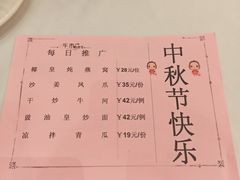 每日推广
椰皇炖燕窝 ¥28元/位
沙姜凤爪 ¥35元/份
干炒牛河 ¥42元/例
豉油皇炒面 ¥42元/例
凉拌青瓜 ¥19元/份
中秋节快乐